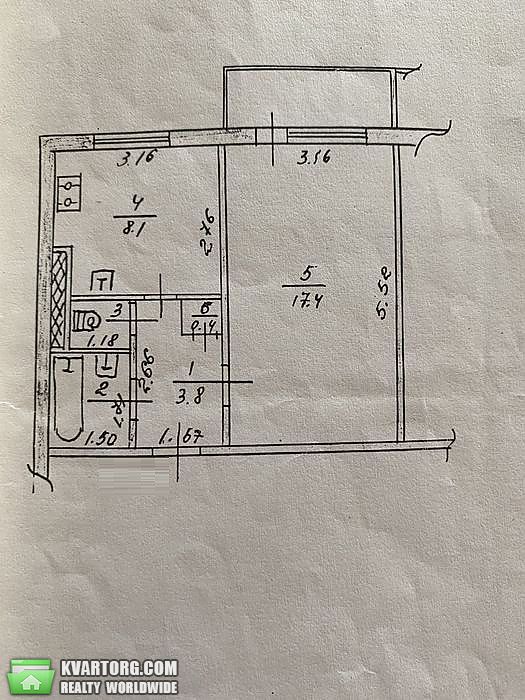 3.16
3.16
4
8.1
2.76
5
17.4
5.52
T
3
6
0.4
1.18
1
3.8
2.68
2
1.50
1.67
KVARTORG.COM
REALTY WORLDWIDE